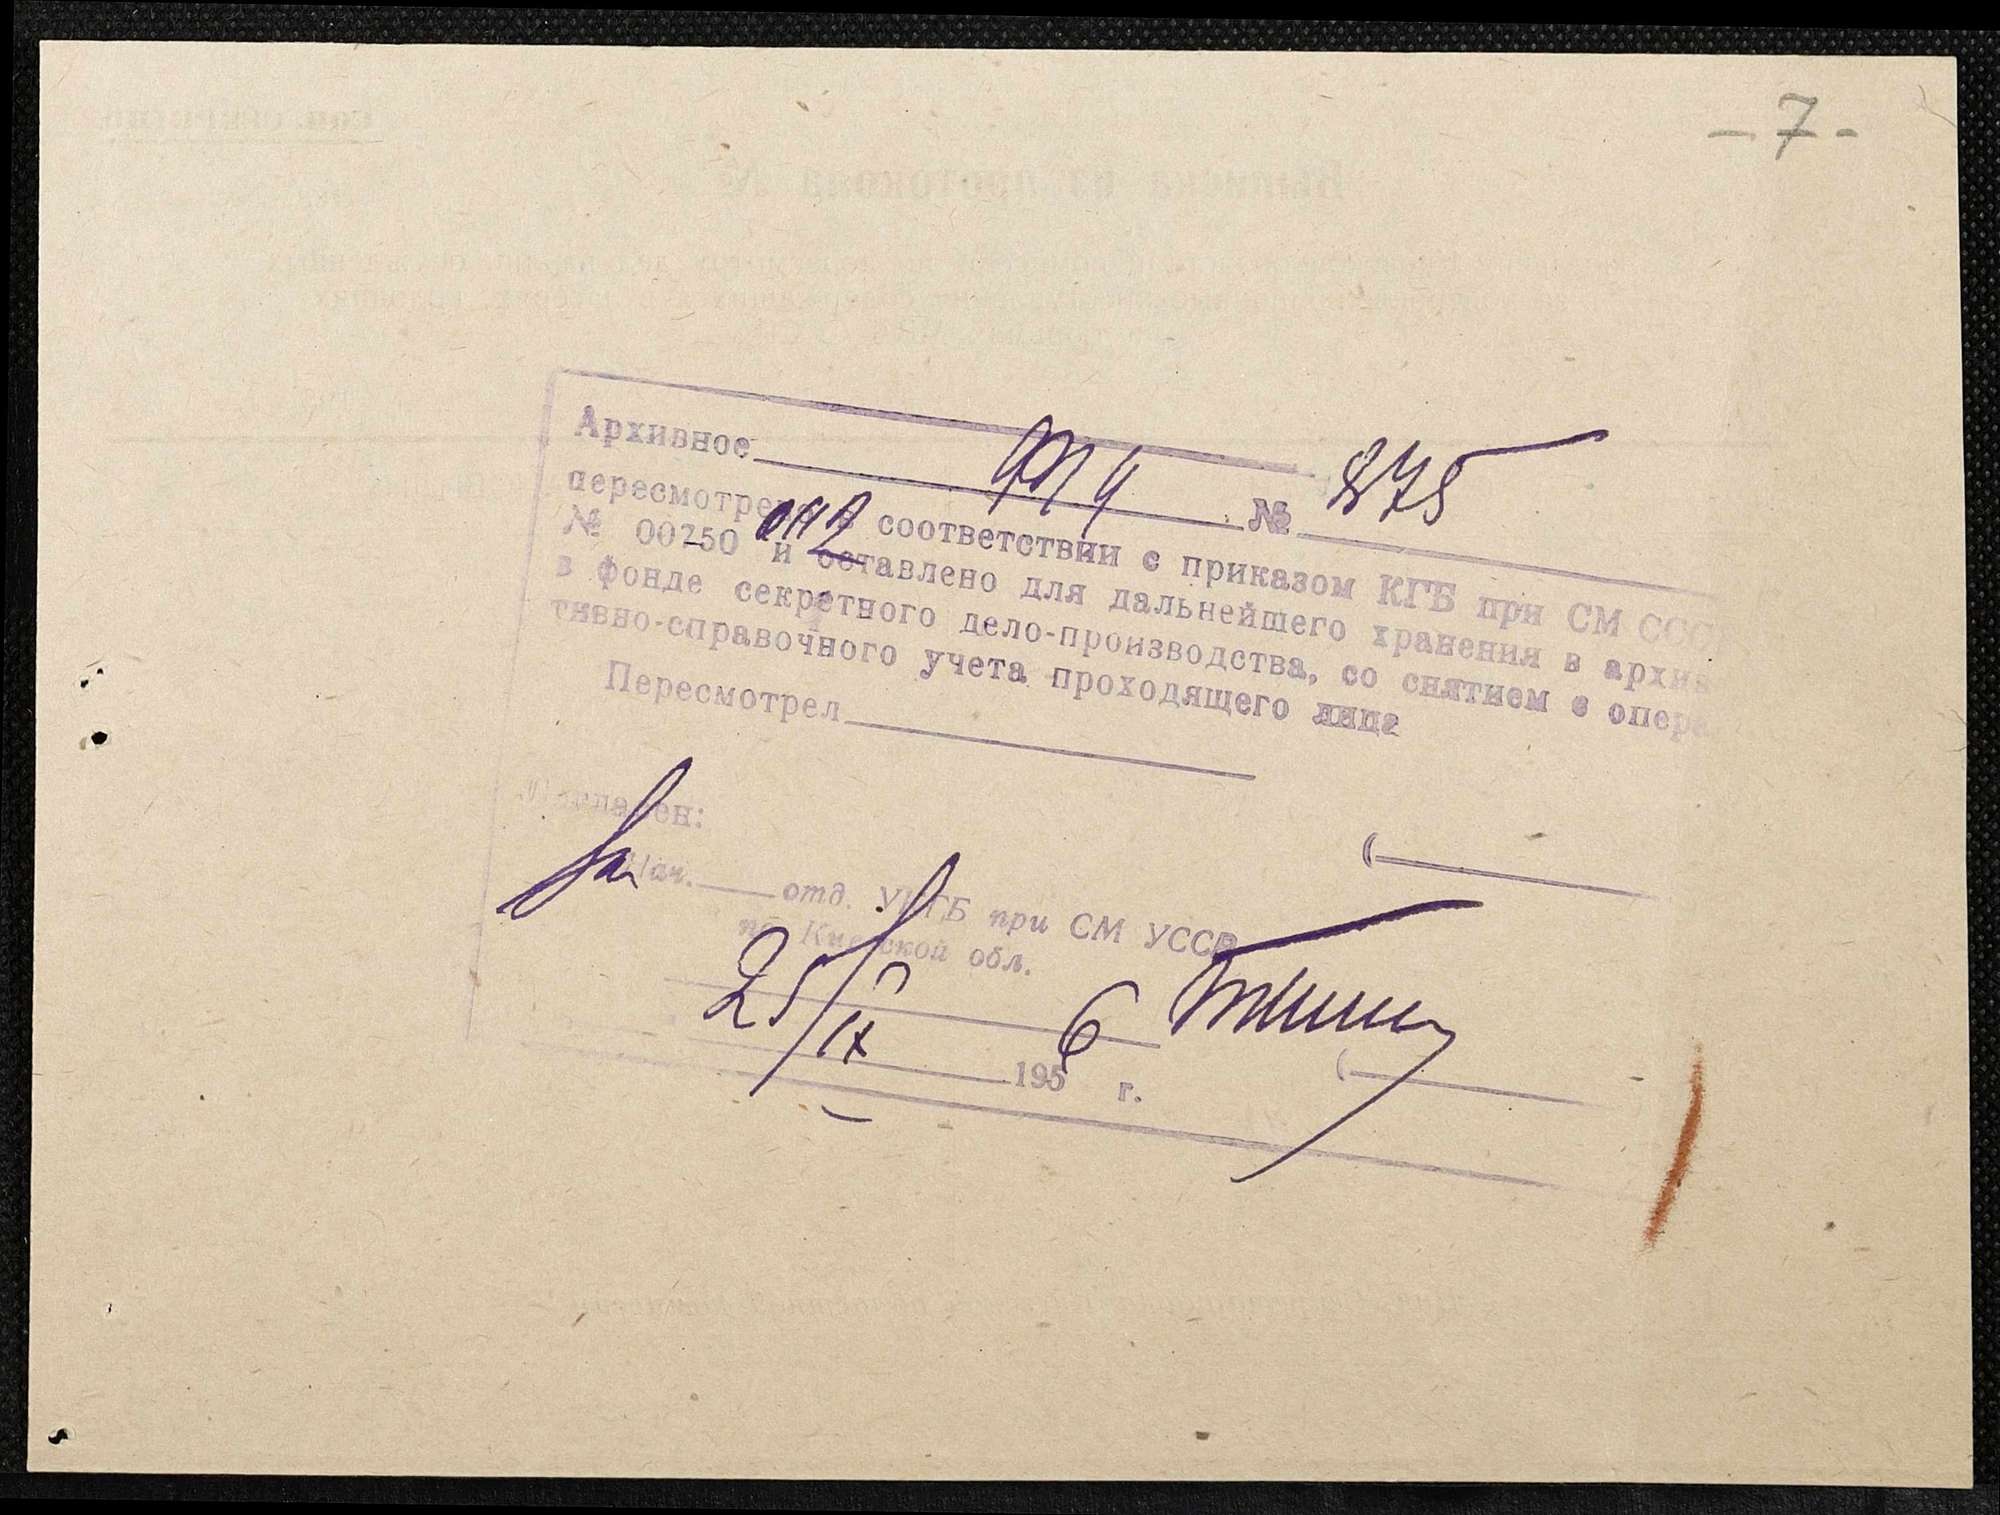 - 7 -
Архивное № 875
пересмотрено в соответствии с приказом КГБ при СМ ССС
№ 00250 и оставлено для дальнейшего хранения в архив
в фонде секретного дело-производства, со снятием с опера
тивно-справочного учета проходящего лица
Пересмотрел
Согласен:
Нач. отд. УКГБ при СМ УССР
по Киевской обл.
25/IX 1956 г.